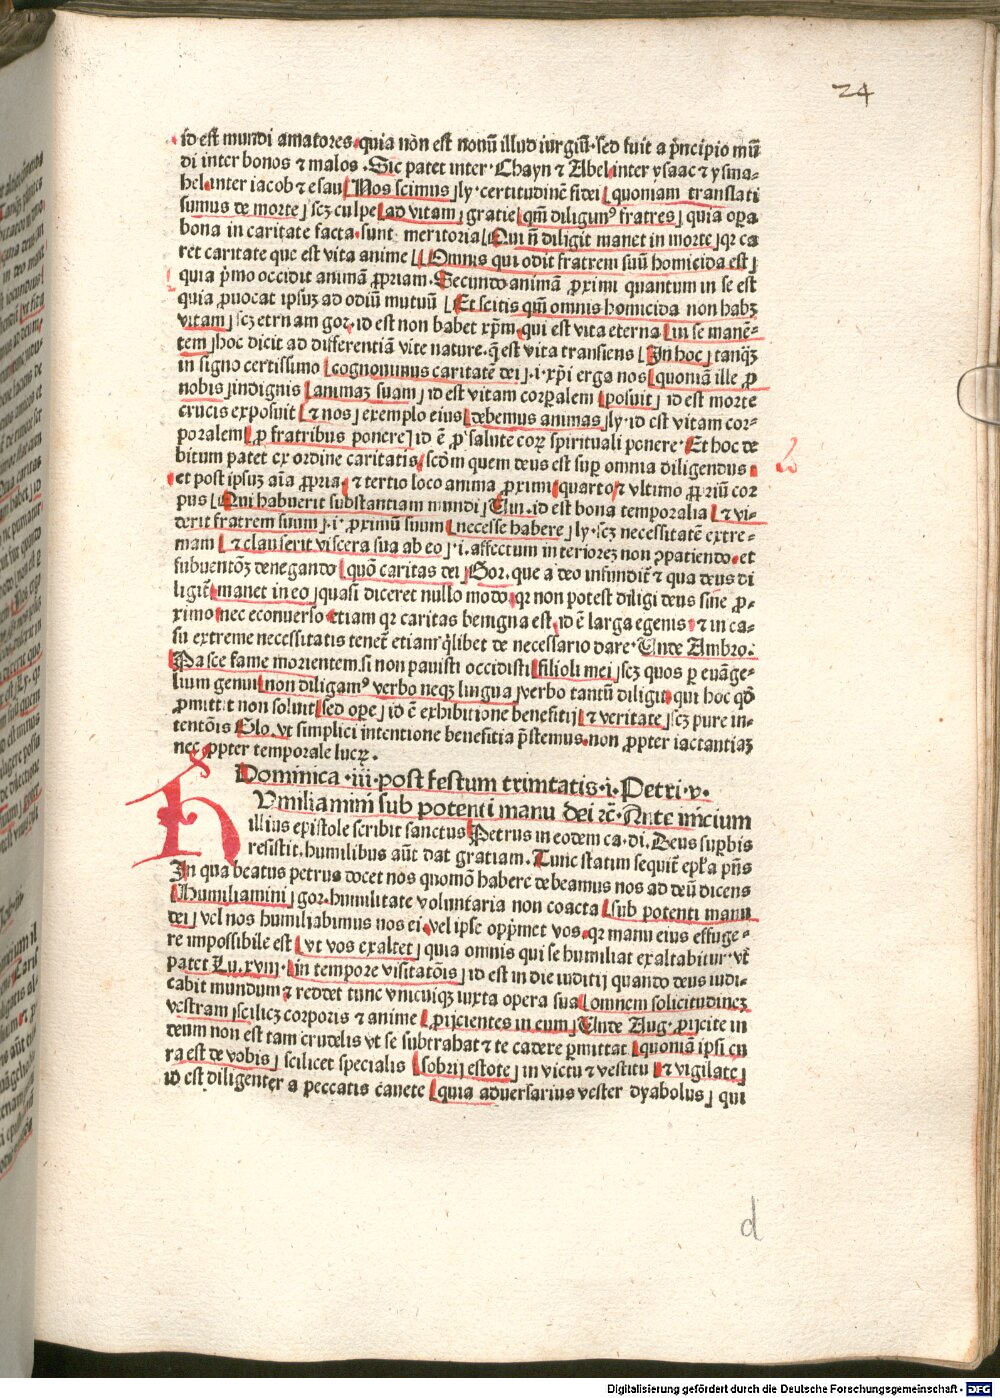 24
id est mundi amatores. quia non est nouū illud iurgiū. sed fuit a p̄ncipio mū
di inter bonos ⁊ malos. Sic patet inter. Chayn ⁊ Abel inter ysaac ⁊ ysma-
hel. inter iacob ⁊ esau [Nos scimus] ly. certitudinē fidei [quoniam translati
sumus de morte] scꝫ culpe [ad vitam] gratie [qm̄ diligimꝰ fratres] quia oꝑa
bona in caritate facta. sunt meritoria [Qui n̄ diligit manet in morte] qꝛ ca
ret caritate que est vita anime [Omnis qui odit fratrem suū homicida est]
quia p̄mo occidit animā ꝓpriam. Secundo animā ꝓximi quantum in se est
quia ꝓuocat ipsuꝫ ad odiū mutuū [Et scitis qm̄ omnis homicida non habꝫ
vitam] scꝫ etrnam goꝛ. id est non habet xp̄m. qui est vita eterna [in se manē-
tem] hoc dicit ad differentiā vite nature. q̄ est vita transiens [In hoc] tanqꝫ
in signo certissimo [cognouimus caritatē dei] .i. xp̄i erga nos [quoniā ille ꝓ
nobis] indignis [animaꝫ suam] id est vitam corꝑalem [posuit] id est morte
crucis exposuit [⁊ nos] exemplo eius [debemus animas] ly. id est vitam cor-
poralem [ꝓ fratribus ponere] id ē ꝓ salute coꝝ spirituali ponere. Et hoc de
bitum patet ex ordine caritatis. scd̄m quem deus est suꝑ omnia diligendus.
et post ipsuꝫ aīa ꝓpria. ⁊ tertio loco anima ꝓximi. quarto ⁊ vltimo ꝓpriū cor
pus [Qui habuerit substantiam mundi] Huī. id est bona temporalia [⁊ vi-
derit fratrem suum] .i. ꝓximū suum [necesse habere] ly. scꝫ necessitatē extre-
mam [⁊ clauserit viscera sua ab eo] .i. affectum interioreꝫ non ꝯpatiendo. et
subuentōꝫ denegando [quō caritas dei] Gor. que a deo infundit̄ ⁊ qua deus di
ligit̄ [manet in eo] quasi diceret nullo modo. qꝛ non potest diligi deus sine ꝓ-
ximo. nec econuerso. etiam qꝛ caritas benigna est. id ē larga egenis. ⁊ in ca-
su extreme necessitatis tenet̄ etiam q̄libet de necessario dare. Unde Ambro.
Pasce fame morientem. si non pauisti occidisti [filioli mei] scꝫ quos ꝑ euāge-
lium genui [non diligamꝰ verbo neqꝫ lingua] verbo tantū diligit. qui hoc qd̄
ꝓmittit non soluit [sed oꝑe] id ē exhibitione beneficij [⁊ veritate] scꝫ pure in-
tentōis Glo. vt simplici intentione beneficia p̄stemus. non ꝓpter iactantiaꝫ
nec ꝓpter temporale lucꝝ.
Dominica .iii. post festum trinitatis .i. Petri .v.
HUmiliamini sub potenti manu dei ⁊c̄. Ante inicium
illius epistole scribit sanctus Petrus in eodem ca. di. Deus suꝑbis
resistit. humilibus aūt dat gratiam. Tunc statim sequit̄ epl̄a p̄ns
In qua beatus petrus docet nos quomō habere debeamus nos ad deū dicens
[Humiliamini] goꝛ. humilitate voluntaria non coacta [sub potenti manu
dei] vel nos humiliabimus nos ei. vel ipse opp̄met vos. qꝛ manū eius effuge-
re impossibile est [vt vos exaltet] quia omnis qui se humiliat exaltabitur. vt̄
patet Lu. xviij. [in tempore visitatōis] id est in die iuditij quando deus iudi-
cabit mundum ⁊ reddet tunc vnicuiqꝫ iuxta opera sua [omnem solicitudineꝫ
vestram] scilicꝫ corporis ⁊ anime [ꝓijcientes in eum] Unde Aug. ꝓijcite in
deum non est tam crudelis vt se subtrahat ⁊ te cadere ꝑmittat [quoniā ipsi cu
ra est de vobis] scilicet specialis [sobrij estote] in victu ⁊ vestitu [⁊ vigilate]
id est diligenter a peccatis cauete [quia aduersarius vester dyabolus] qui
d
Digitalisierung gefördert durch die Deutsche Forschungsgemeinschaft - DFG